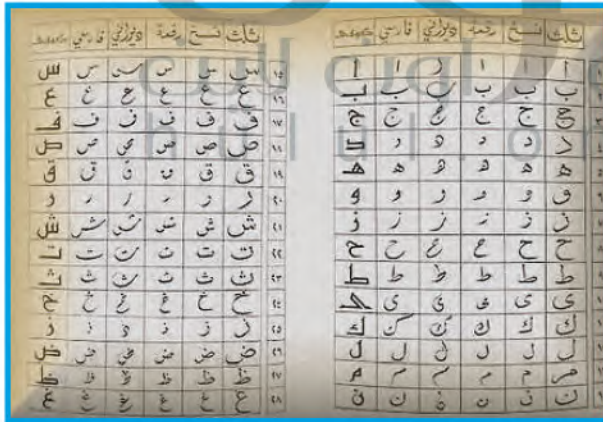 ثلث نسخ رقعة ديواني فارسي كوفي
ا ا ا ا ا ا
ب ب ب ب ب ب
ج ج ج ج ج ج
د د د د د د
ه ه ه ه ه ه
و و و و و و
ز ز ز ز ز ز
ح ح ح ح ح ح
ط ط ط ط ط ط
ى ى ى ى ى ى
ك ك ك ك ك ك
ل ل ل ل ل ل
م م م م م م
ن ن ن ن ن ن
ثلث نسخ رقعة ديواني فارسي كوفي
١٥ س س س س س س
١٦ ع ع ع ع ع ع
١٧ ف ف ف ف ف ف
١٨ ص ص ص ص ص ص
١٩ ق ق ق ق ق ق
٢٠ ر ر ر ر ر ر
٢١ ش ش ش ش ش ش
٢٢ ت ت ت ت ت ت
٢٣ ث ث ث ث ث ث
٢٤ خ خ خ خ خ خ
٢٥ ذ ذ ذ ذ ذ ذ
٢٦ ض ض ض ض ض ض
٢٧ ظ ظ ظ ظ ظ ظ
٢٨ غ غ غ غ غ غ
اون لاين
hulul.on